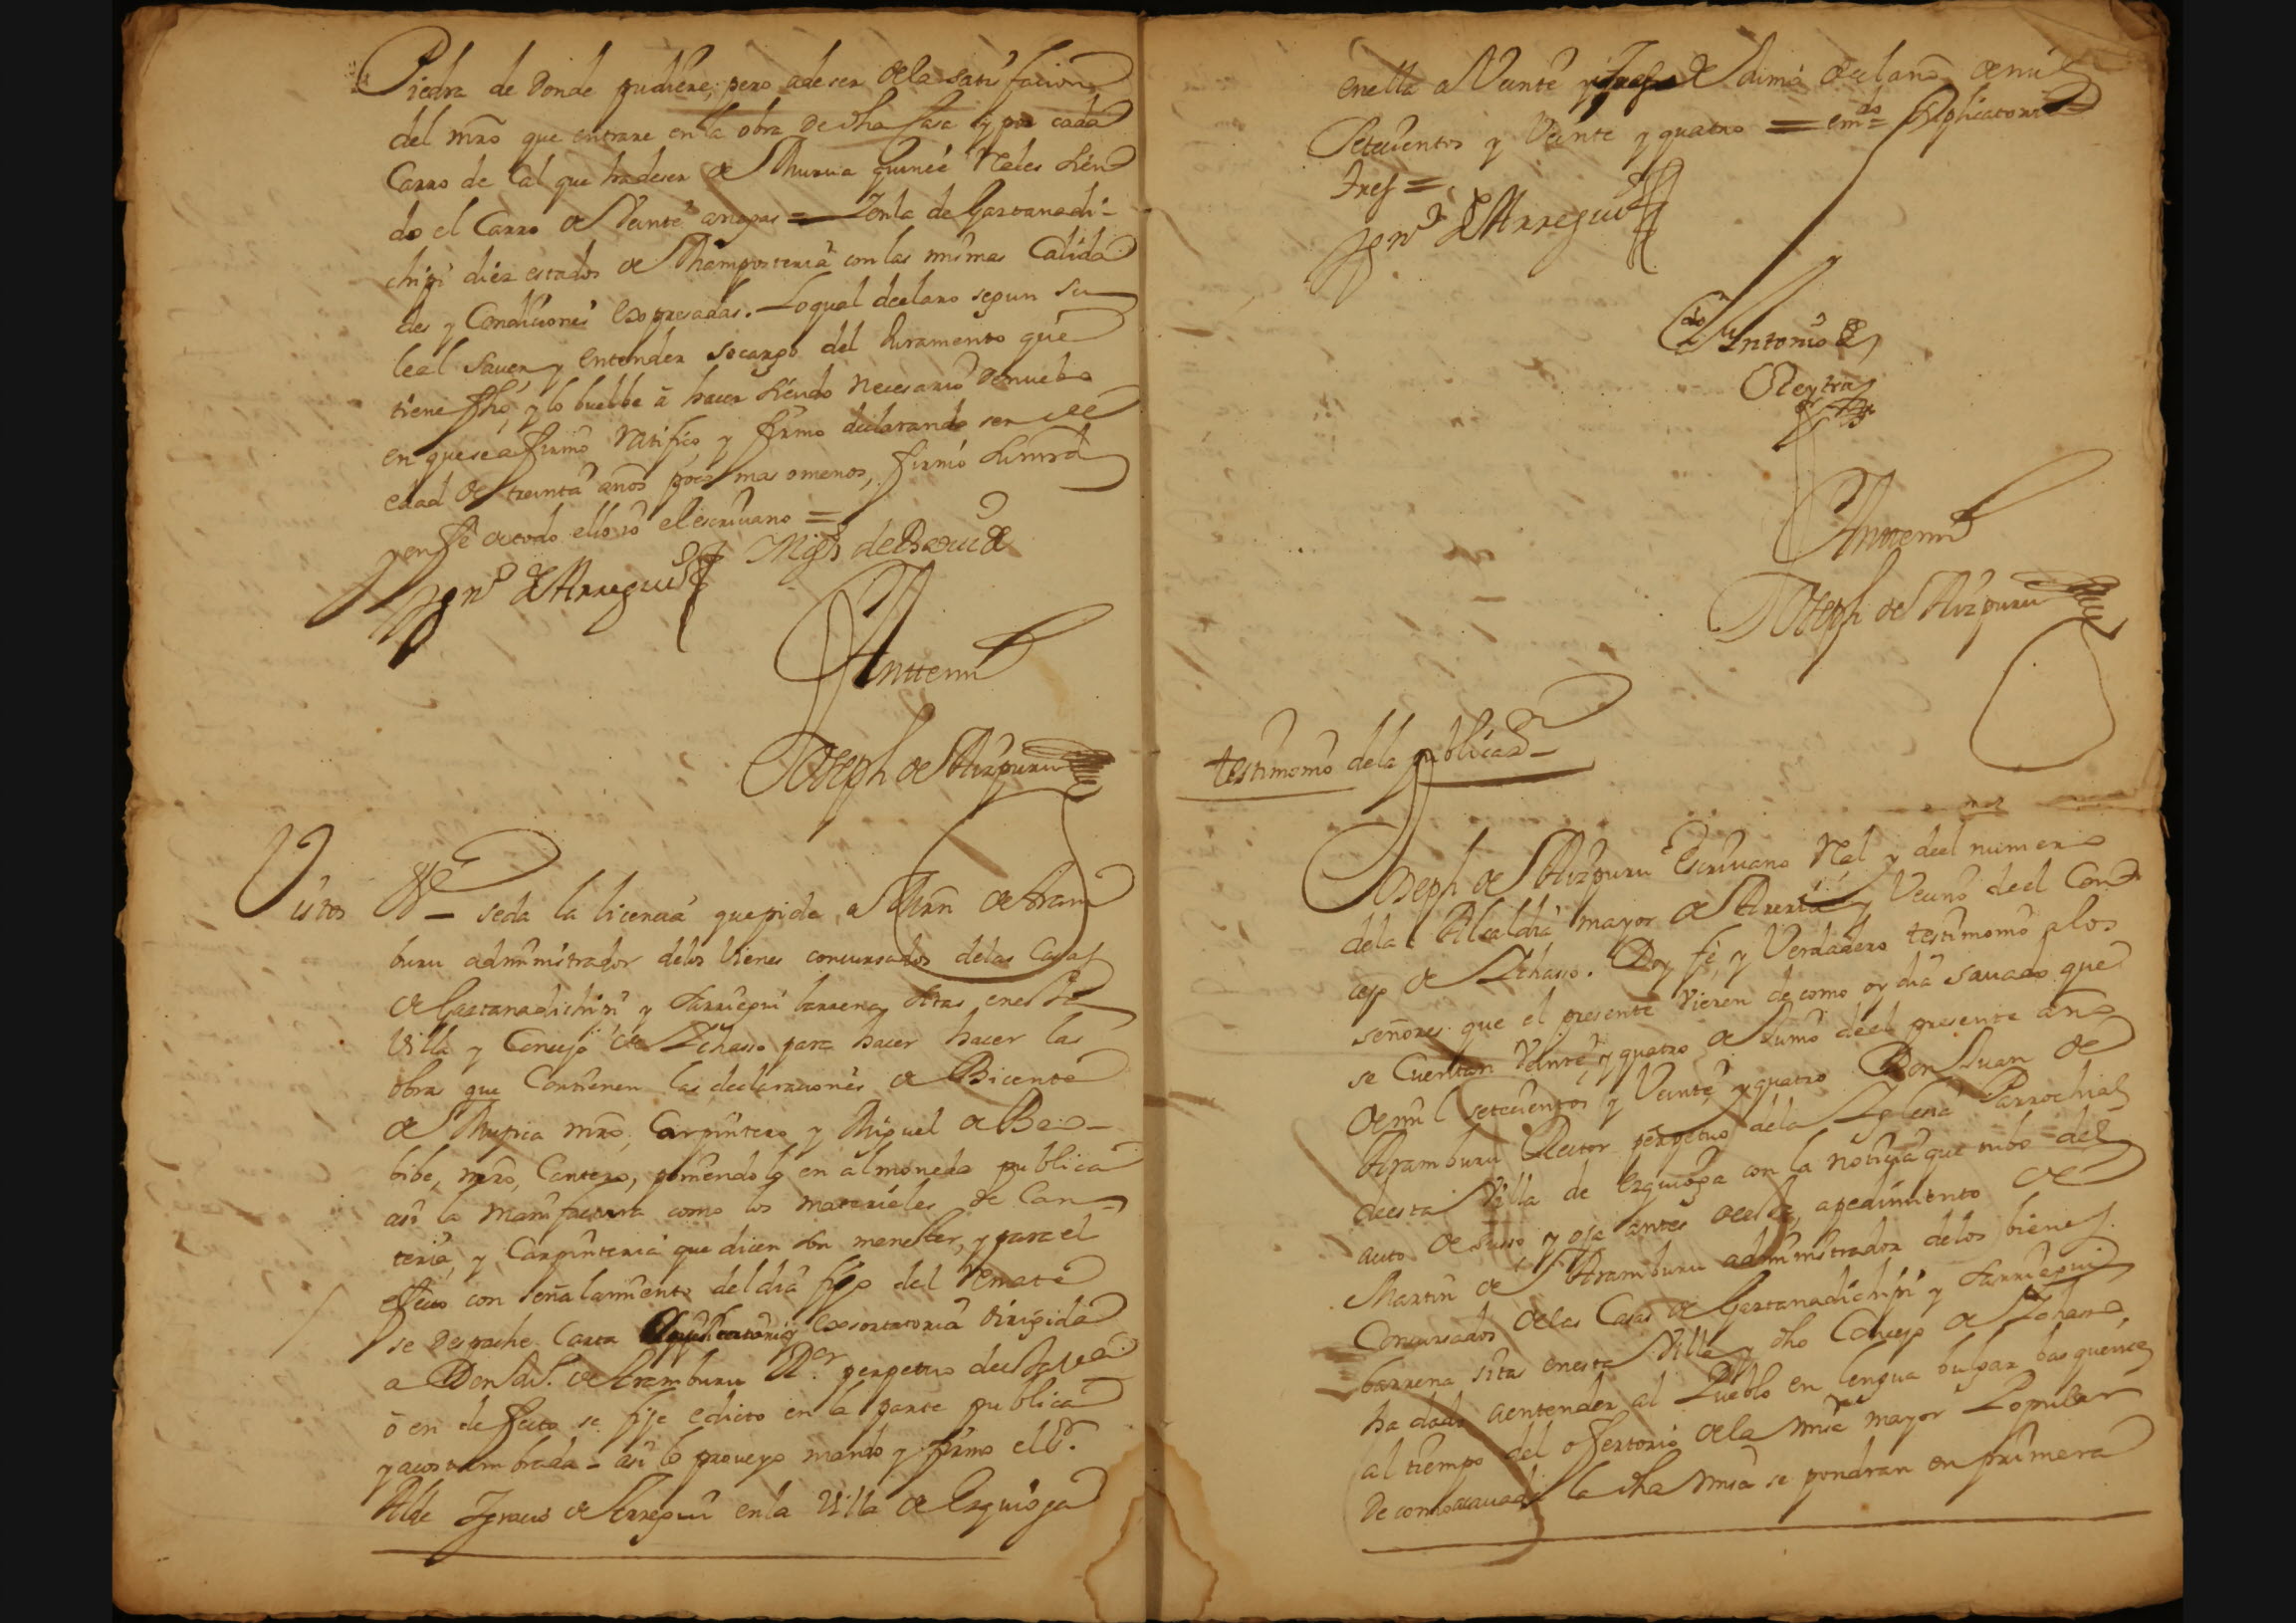 Piedra de donde pudiere, pero a de ser de la satisfacion
del mro que entrare en la obra de dha Casa y por cada
Carro de Cal que ha de ser de Murua quince Reales sien
do el Carro de Veinte anegas = Y en la de Gaztanadi-
chipi diez estados de Mamposteria con las mismas Calida
des y Condiciones expresadas. Lo qual declaro segun su
leal saver y entender so cargo del Juramento que
tiene fho, y lo buelbe a hacer siendo necesario de nuebo
en que se afirmo ratifico y firmo declarando ser de
edad de treinta años poco mas o menos, firmo su mrd
y en fe de todo ello yo el escrivano =
Ignº de Arregui Migl de Beovide
Antte mi
Joseph de Aizpuru
Vistos se da la licencia que pide a Mrn de Aram
buru administrador de los vienes concursados de las Casas
de Gaztanadichipi y Sarriegui barrena sitas en esta
Villa y Concejo de Ychasso para hacer hacer las
obras que Contienen las declaraciones de Bicente
de Mugica mro Carpintero y Miguel de Beo-
bibe, mro, Cantero, poniendolo en almoneda publica
asi la manifactura como los materieles de Can-
teria, y Carpinteria que dicen son menester, y para el
efecto con señalamiento del dia fijo del remate
se despache Carta exsortatoria dirigida
a Don Ju. de Aramburu Ror perpetuo de esta Vª
ô en defecto se fije edicto en la parte publica
y acostumbrada - asi lo proveyo mando y firmo el Sr.
Alde Ygnacio de Arregui en la Villa de Ezquioga
en ella a Veinte y tres de Junio de el año de mil
Setecientos y Veinte y quatro = emdo =
tres =
Ignº de Arregui
Antonio de
Antte mi
Joseph de Aizpuru
testimonio de la publicaon
Joseph de Aizpuru Escrivano Rel y del numero
de la Alcaldia mayor de Areria y Vecino de el Con
cejo de Ychasso. Doy fe, y Verdadero testimonio a los
señores que el presente vieren de como oy dia savado que
se Cuentan Veinte y quatro de Junio de el presente año
de mil setecientos y Veinte y quatro Don Juan de
Aramburu Rector perpetuo de la Yglesia Parrochial
de esta Villa de Ezquioga con la noticia que tubo del
auto de suso y oja antes de esta, a pedimiento de
Martin de Aramburu administrador de los bienes
Concursados de las Casas de Gaztanadichipi y Sarriegui
barrena sitas en esta Villa y dho Concejo de Ychasso,
ha dado a entender al Pueblo en lengua bulgar basquence
al tiempo del ofertorio de la misa mayor Popular
de como acavada la dha misa se pondran en primera